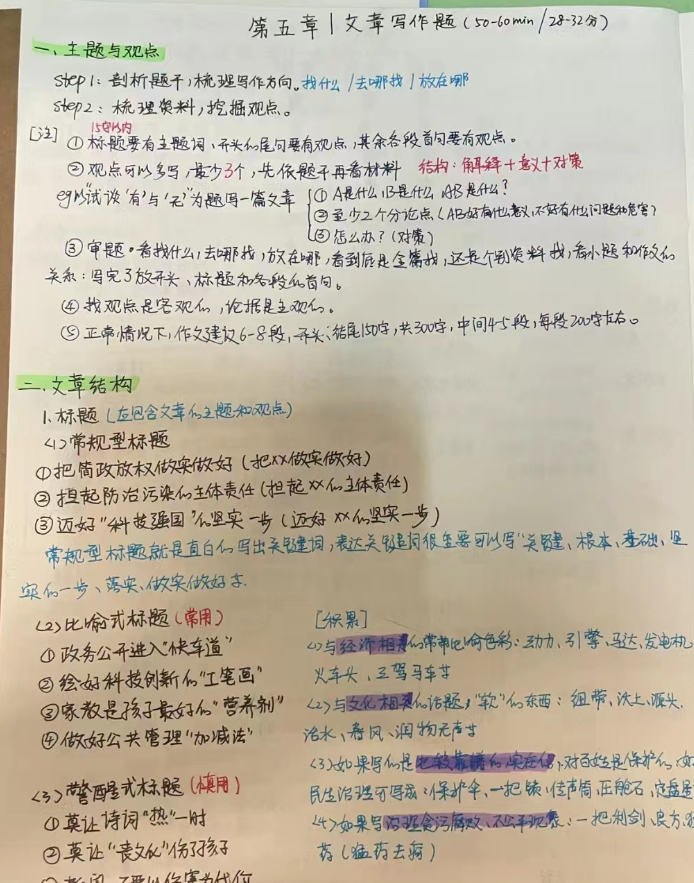 第五章|文章写作题(50-60min/28-32分)
一、主题与观点
step1:剖析题干,梳理写作方向。找什么/去哪找/放在哪
step2:梳理资料,挖掘观点。
15字以内
[注]①标题要有主题词,开头的尾句要有观点,其余各段首句要有观点。
②观点可以多写,最少3个,先依题干再看材料 结构:解释+意义+对策
eg以"试谈'有'与'无'"为题写一篇文章
①A是什么,B是什么,AB是什么?
②至少2个分论点(AB好有什么意义,不好有什么问题和危害)
③怎么办?(对策)
③审题。看找什么,去哪找,放在哪,看到底是全篇找,还是个别资料找,看小题和作文的
关系:写完3放开头、标题和各段的首句。
④找观点是客观的,论据是主观的。
⑤正常情况下,作文建议6-8段,开头、结尾150字,共300字,中间4-5段,每段200字左右。
二、文章结构
1.标题(应包含文章的主题和观点)
<1>常规型标题
①把简政放权做实做好(把XX做实做好)
②担起防治污染的主体责任(担起XX的主体责任)
③迈好"科技强国"的坚实一步(迈好XX的坚实一步)
常规型标题就是直白的写出关键词,表达关键词很重要可以写"关键、根本、基础、坚
实的一步、落实、做实做好等.
<2>比喻式标题(常用)
①政务公开进入"快车道"
②绘好科技创新的"工笔画"
③家教是孩子最好的"营养剂"
④做好公共管理"加减法"
<3>警醒式标题(慎用)
①莫让诗词"热"一时
②莫让"丧文化"伤了孩子
[积累]
<1>与经济相关的常带比喻色彩:动力、引擎、马达、发电机
火车头、五驾马车等
<2>与文化相关的话题,"软"的东西:纽带、沃土、源头、
活水、春风、润物无声等
<3>如果写的是比较靠谱的,实在的,对百姓是保护的,如
民生治理可写成:保护伞、一把锁、传声筒、压舱石、定盘星
<4>如果写治理贪污腐败、不公平现象:一把利剑、良方、
药(猛药去疴)